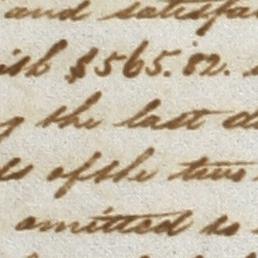 and satisfa
ish $565.82.
the last d
ls of the two
omitted to